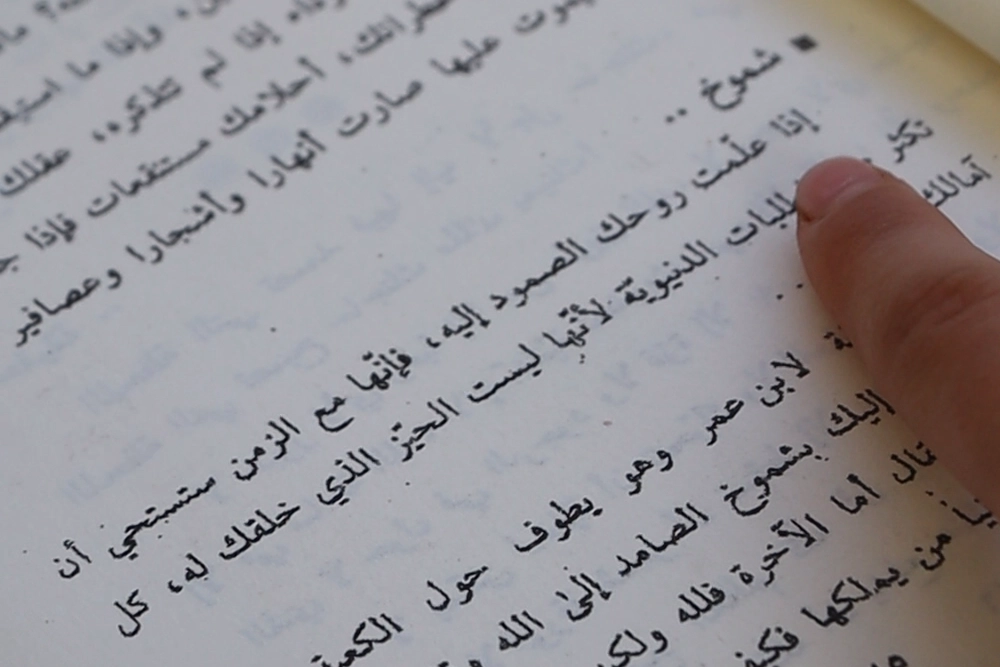 وإذا ما
إذا لم تتذكره، عقلك
أحلامك مستنقعات فإذا
عليها صارت أنهارا وأشجارا وعصافير
■ شموخ ..
إذا علّمت روحك الصمود إليه، فإنّها مع الزمن ستستحي أن
تكثر الدنيويّة لأنّها ليست الحيّز الذي خلقك له، كل
آمالك
..
لابن عمر وهو يطوف حول الكعبة
إليك بشموخ الصامد إلى الله
قال أما الآخرة فلله
من يملكها